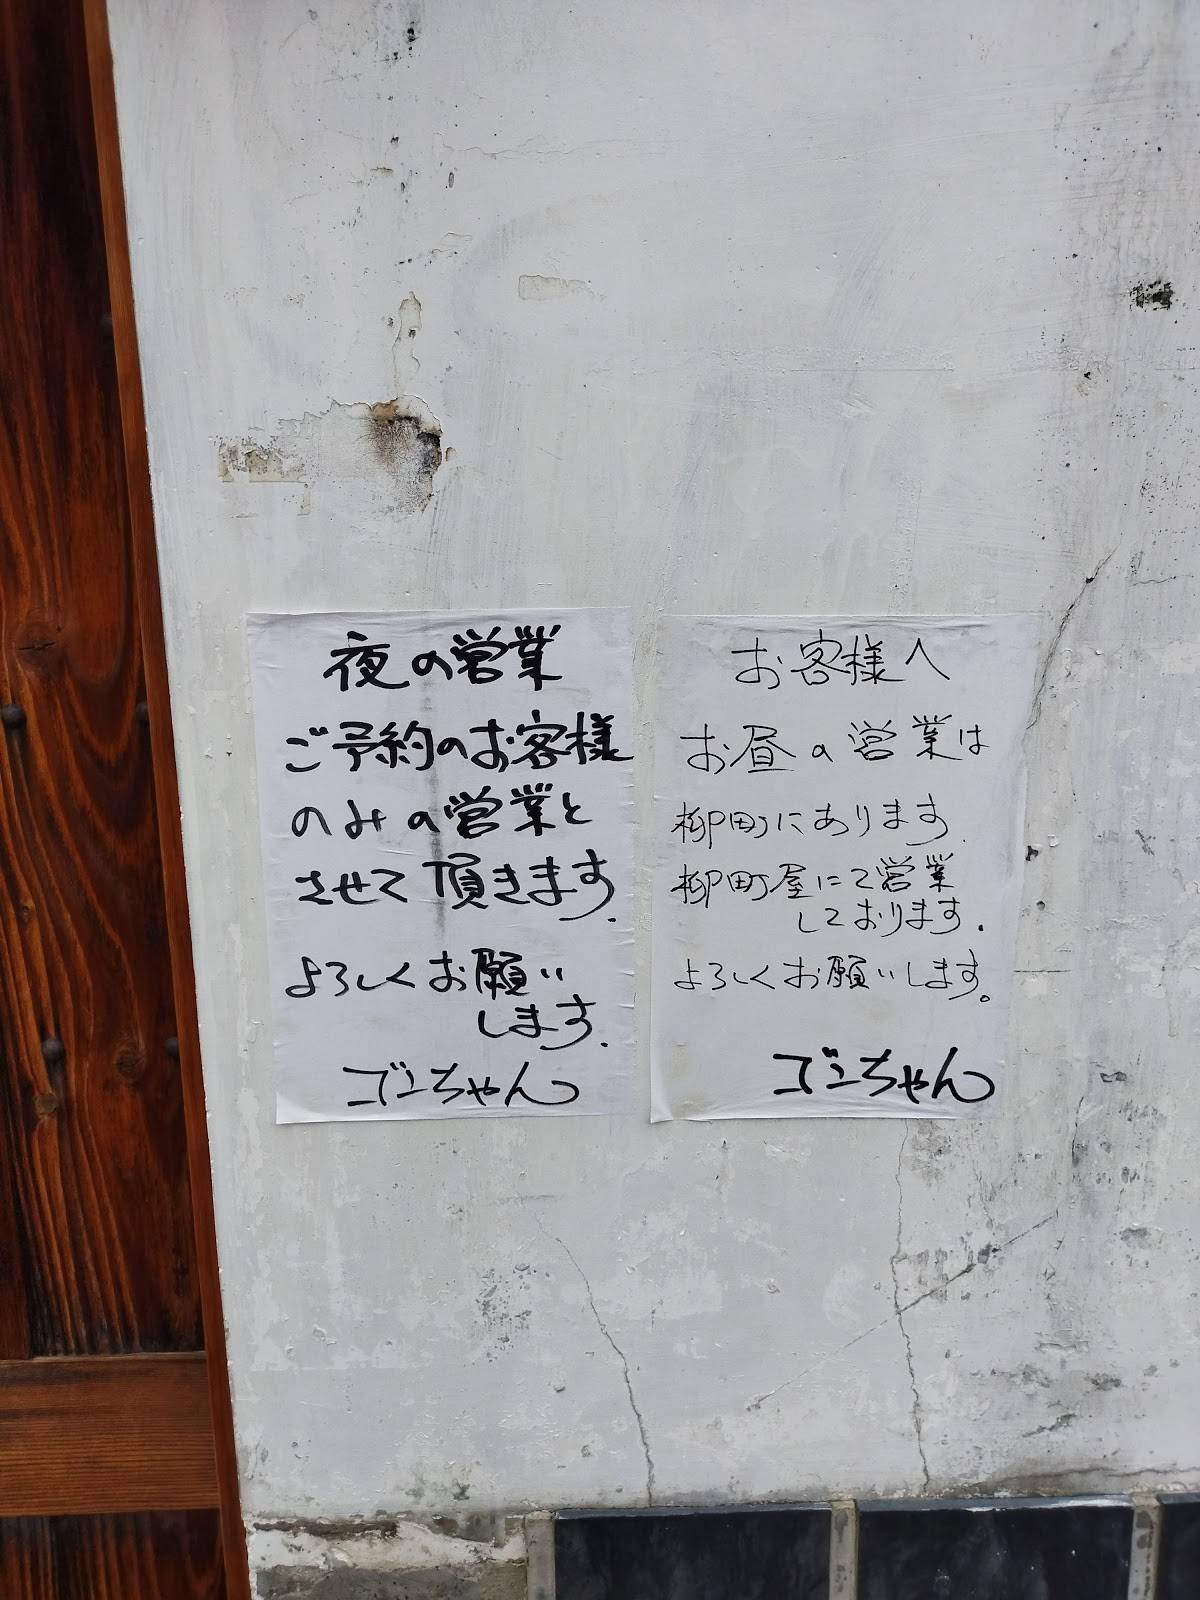 夜の営業
ご予約のお客様
のみの営業と
させて頂きます.
よろしくお願い
します.
ゴンちゃん
お客様へ
お昼の営業は
柳町にあります.
柳町屋にて営業
しております.
よろしくお願いします。
ゴンちゃん